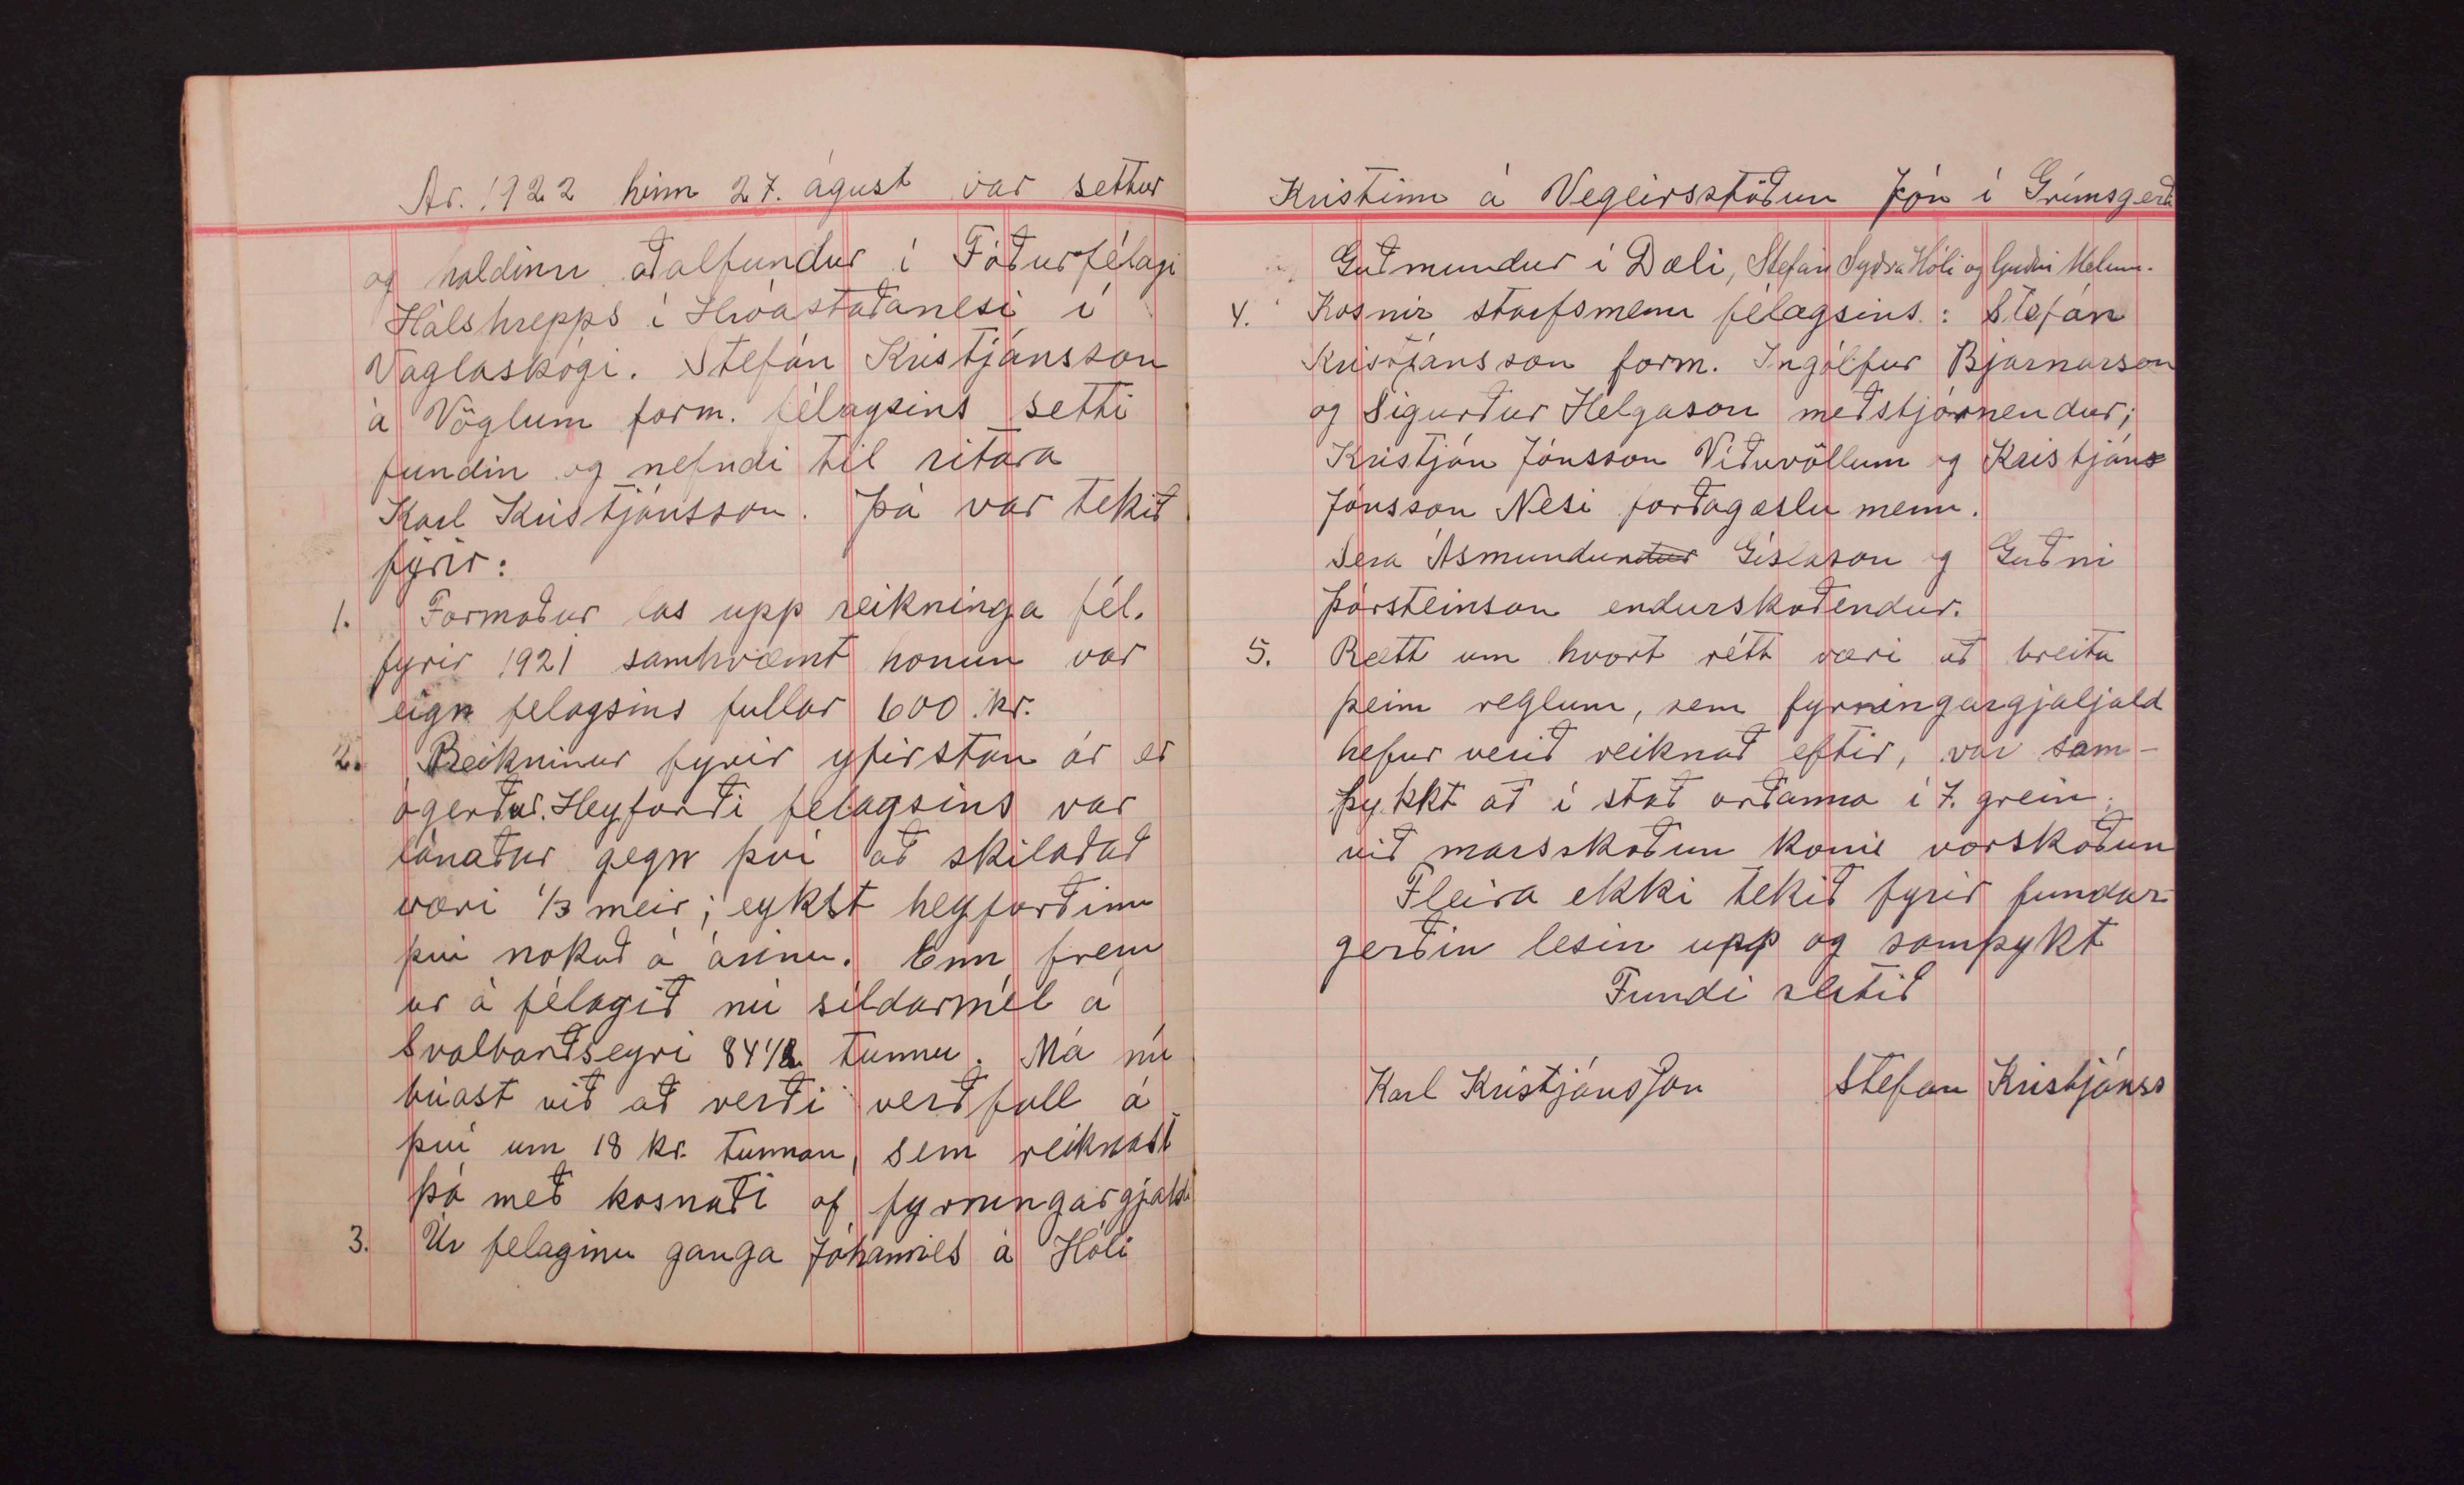 Ár. 1922 hinn 27. ágúst var settur
og haldinn aðalfundur í Fóðurfélagi
Hálshrepps í Hróastaðanesi í
Vaglaskógi. Stefán Kristjánsson
á Vöglum form. félagsins setti
fundin og nefndi til ritara
Karl Kristjánsson. Þá var tekið
fyrir:
1. Formaður las upp reikninga fél.
fyrir 1921 samkvæmt honum var
eign félagsins fullar 600 kr.
2. Reikninur fyrir yfirstan ár er
ógerður. Heyforði félagsins var
lánaður gegn því að skilað að
væri 1/3 meir; eykst heyforðinn
því nokuð á árinu. Enn frem
ur á félagið nú síldarmél á
Svalbarðseyri 84 1/2 tunnu. Má nú
búast við að verði verðfall á
því um 18 kr. tunnan, sem reiknast
þá með kosnaði af fyrningargjaldi
3. Úr félaginu ganga Jóhannes á Hóli
Kristinn á Vegeirsstöðun Jón í Grímsgerði
Guðmundur í Dæli, Stefán Syðra Hóli og Guðni Melum.
4. Kosnir starfsmenn félagsins: Stefán
Kristjánsson form. Ingólfur Bjarnarson
og Sigurður Helgason meðstjórnendur;
Kristján Jónsson Víðuvöllum og Kristjáns
Jónsson Nesi forðagæslu menn.
Séra Ásmundur Gíslason og Guðni
Þórsteinson endurskoðendur.
5. Rætt um hvort rétt væri að breita
þeim reglum, sem fyrningargjaljald
hefur verið reiknað eftir, var sam-
þykkt að í stað orðanna í 7. grein
við marsskoðun komi vorskoðun
Fleira ekki tekið fyrir fundar-
gerðin lesin upp og samþykt
Fundi slitið
Karl Kristjánsson Stefán Kristjánss